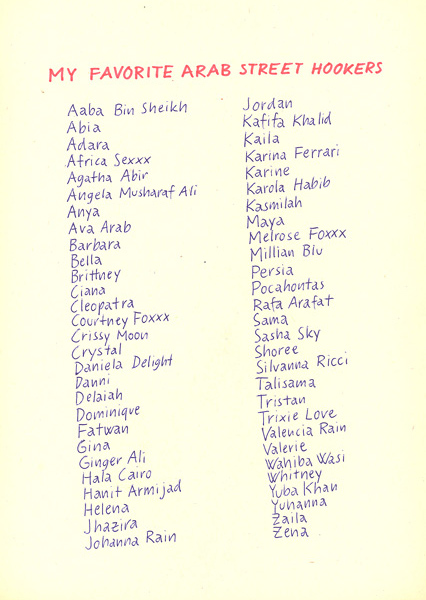 MY FAVORITE ARAB STREET HOOKERS
Aaba Bin Sheikh
Abia
Adara
Africa Sexxx
Agatha Abir
Angela Musharaf Ali
Anya
Ava Arab
Barbara
Bella
Brittney
Ciana
Cleopatra
Courtney Foxxx
Crissy Moon
Crystal
Daniela Delight
Danni
Delaiah
Dominique
Fatwan
Gina
Ginger Ali
Hala Cairo
Hanit Armijad
Helena
Jhazira
Johanna Rain
Jordan
Kafifa Khalid
Kaila
Karina Ferrari
Karine
Karola Habib
Kasmilah
Maya
Melrose Foxxx
Millian Blu
Persia
Pocahontas
Rafa Arafat
Sama
Sasha Sky
Shoree
Silvanna Ricci
Talisama
Tristan
Trixie Love
Valencia Rain
Valerie
Wahiba Wasi
Whitney
Yuba Khan
Yuhanna
Zaila
Zena